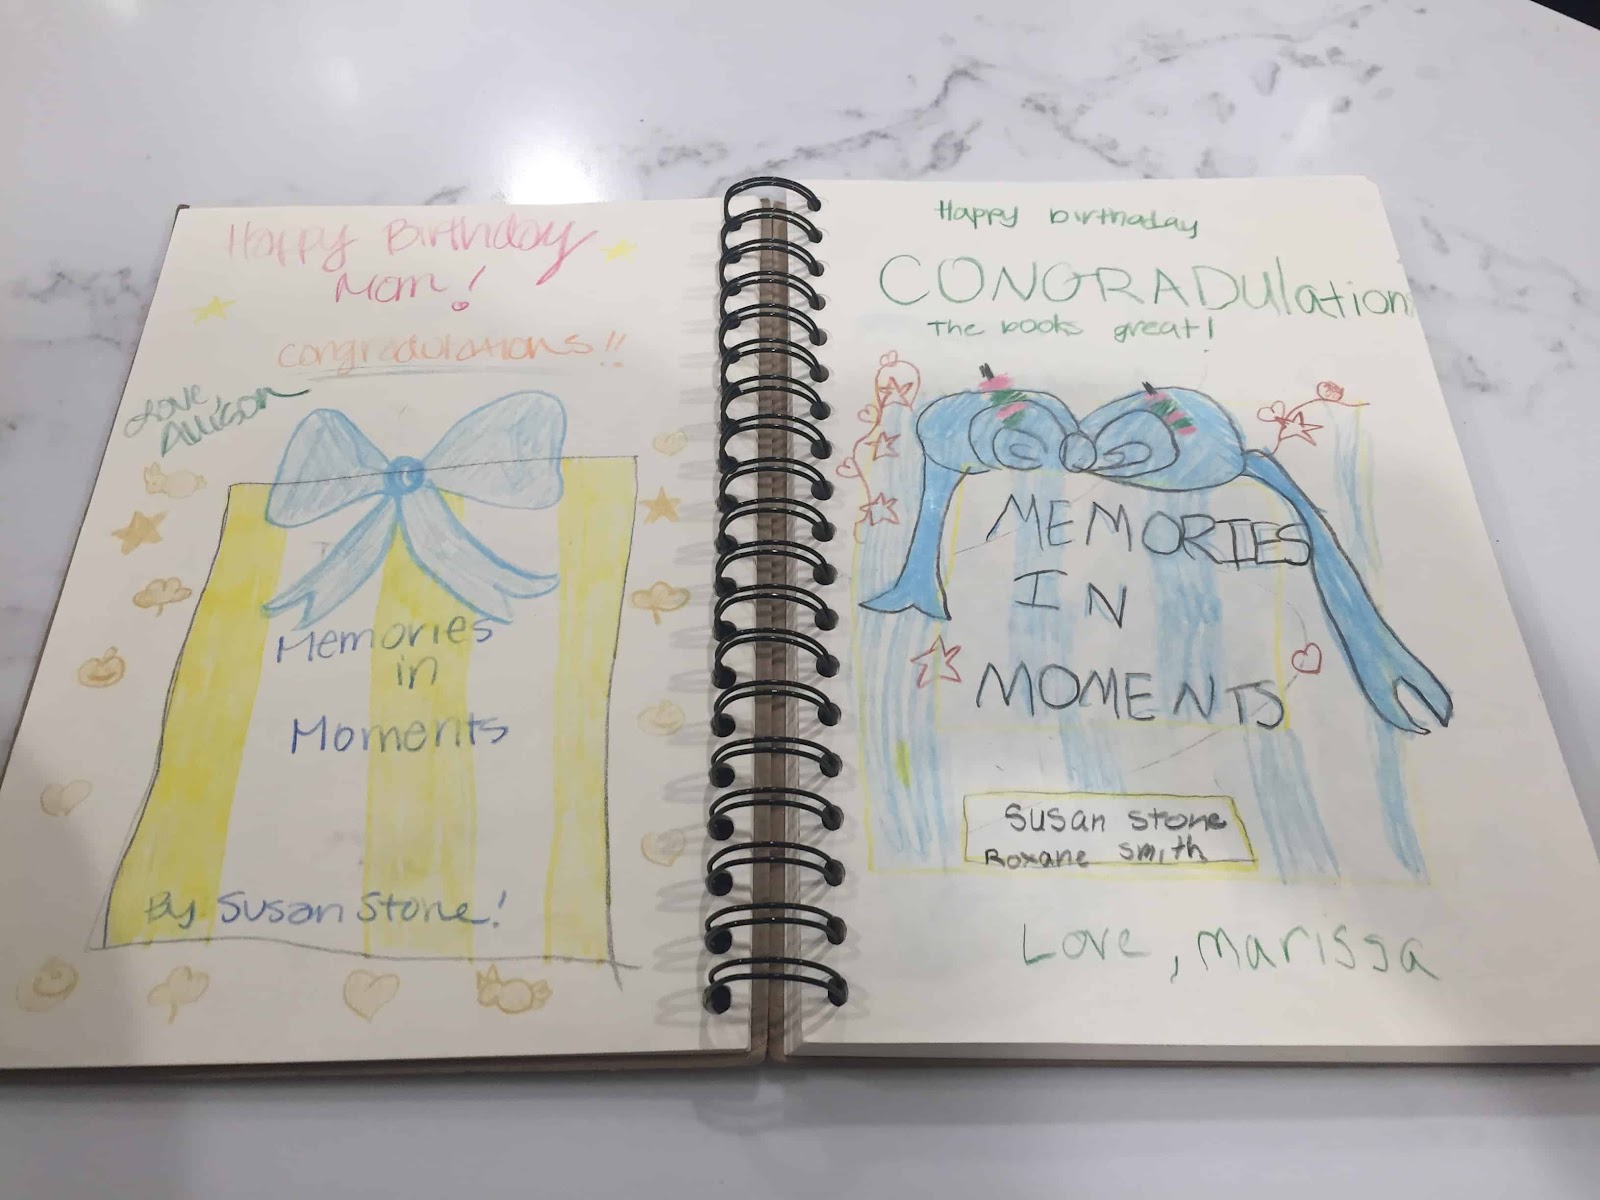 Happy Birthday
Mom!
congradulations!!
Love
Allison
Memories
in
Moments
By Susan Stone!
Happy birthaday
CONGRADUlation
The books great!
MEMORIES
IN
MOMENTS
Susan Stone
Roxane Smith
Love, Marissa